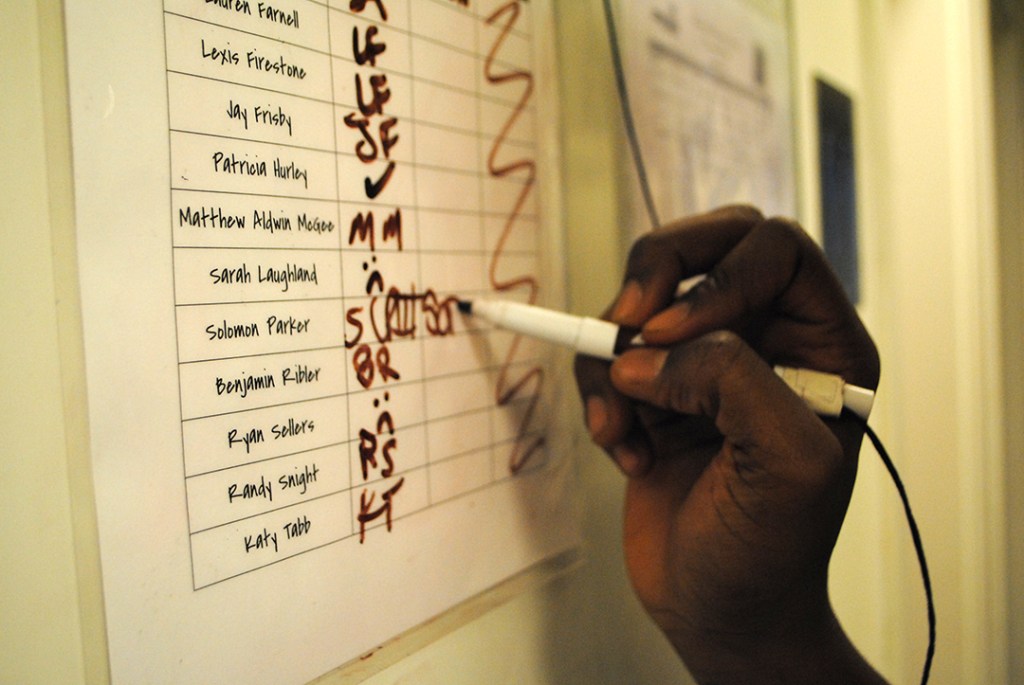 Lauren Farnell
Lexis Firestone LF
Jay Frisby LF
Patricia Hurley JF
Matthew Aldwin McGee ✓
Sarah Laughland MM
Solomon Parker :(
Benjamin Ribler BR
Ryan Sellers :(
Randy Snight RS
Katy Tabb KT